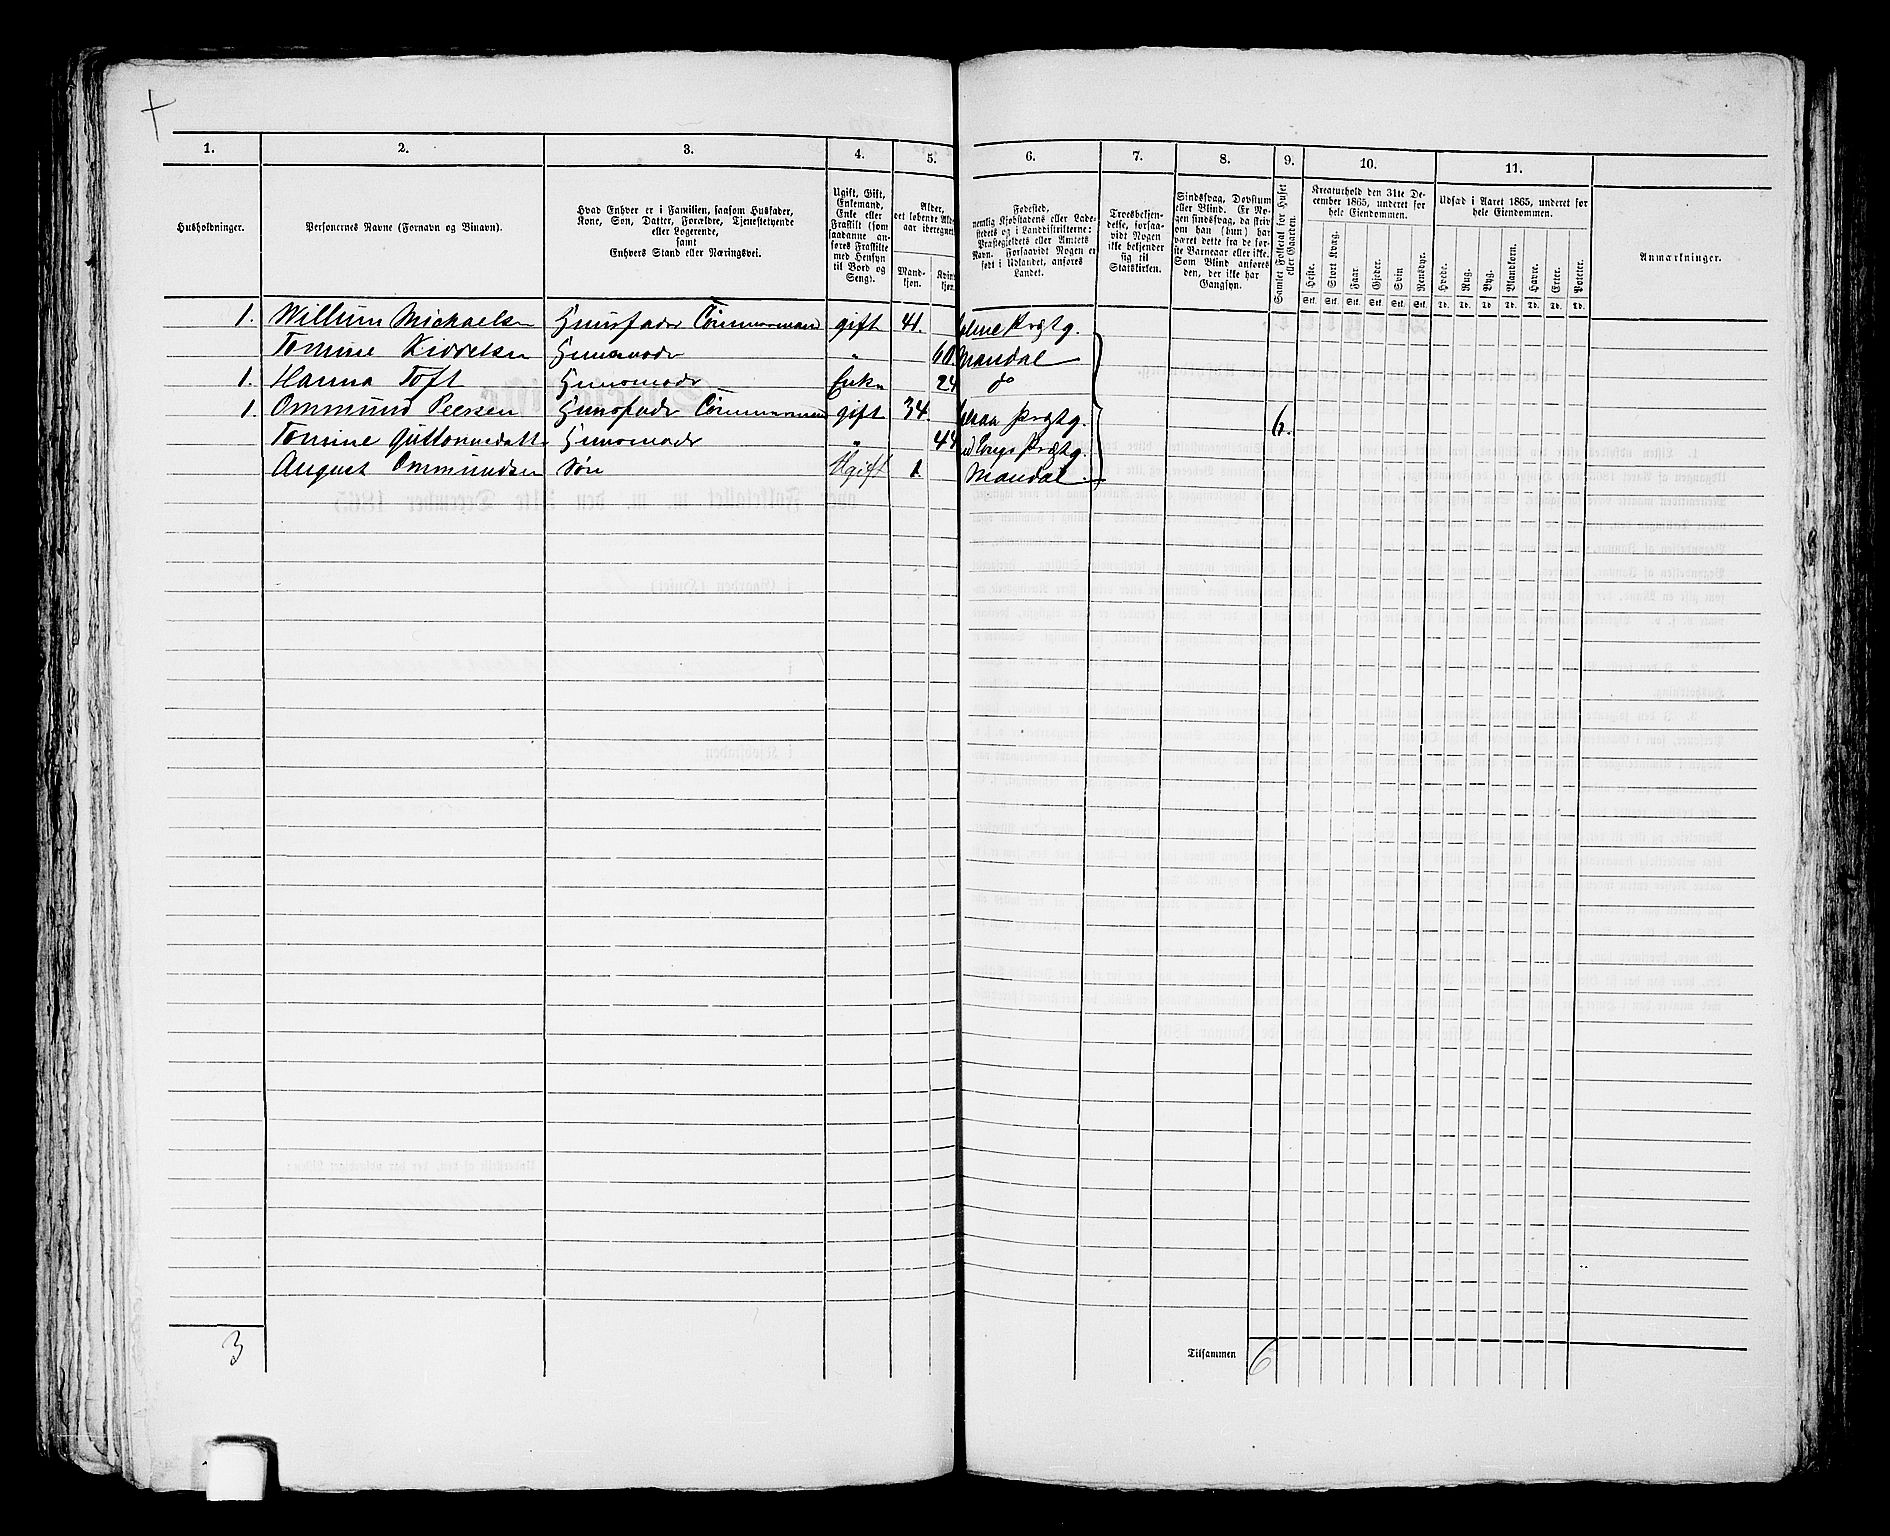 1. 2. 3. 4. 5. 6. 7. 8. 9. 10. 11.
Husholdninger.
Personernes Navne (Fornavn og Binavn).
Hvad Enhver er i Familien, saasom Husfader,
Kone, Søn, Datter, Forældre, Tjenestetyende
eller Logerende,
samt
Enhvers Stand eller Næringsvei.
Ugift, Gift,
Enkemand,
Enke eller
Fraskilt (som
saadanne an-
føres Fraskilte
med Hensyn
til Bord og
Seng).
Alder,
det løbende Alders-
aar iberegnet
Mand-
kjøn.
Kvin-
kjøn.
Fødested,
nemlig Kjøbstadens eller Lade-
stedets og i Landdistrikterne:
Præstegjeldets eller Amtets
Navn. Forsaavidt Nogen er
født i Udlandet, anføres
Landet.
Troesbekjen-
delse, forsaa-
vidt Nogen
ikke bekjender
sig til
Statskirken.
Sindssvag, Døvstum
eller Blind. Er No-
gen sindssvag, da skriv
om han (hun) har
været dette fra de før-
ste Barneaar eller ikke.
Som Blind anføres
den, der ikke har
Gangsyn.
Samlet Folketal for Huset
eller Gaarden.
Kreaturhold den 31te De-
cember 1865, underet for
hele Eiendommen.
Heste. Stort Kvæg. Faar. Gjeder. Svin Rensdyr.
Stk. Stk. Stk. Stk. Stk. Stk.
Udsæd i Aaret 1865, underet for
hele Eiendommen.
Hvede. Rug. Byg. Blandkorn. Havre. Erter. Poteter.
Td. Td. Td. Td. Td. Td. Td.
Anmærkninger.
1. Willum Michaelsen Huusfader Tømmermand gift 41. Prstg.
Tomine Huusmoder " 60. Mandal
1. Hanna Toft Huusmoder Enke 24 do
1 Ommund Peersen Huusfader Tømmermand gift 34. Prstg. 6.
Tomine Huusmoder " 44 Prstg.
August Ommundsen Søn Ugift 1. Mandal.
3
Tilsammen 6